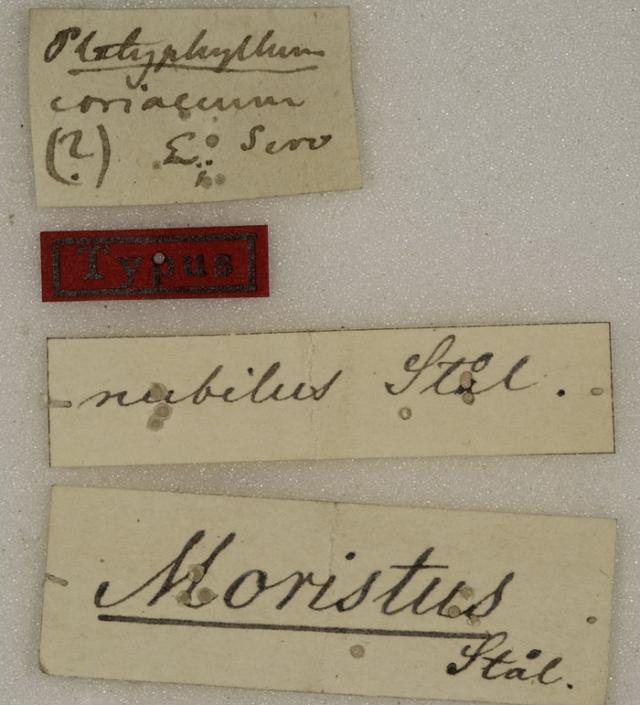 Platyphyllum
coriaceum
(?) E. Serv
Typus
nubilus Stål.
Moristus
Stål.